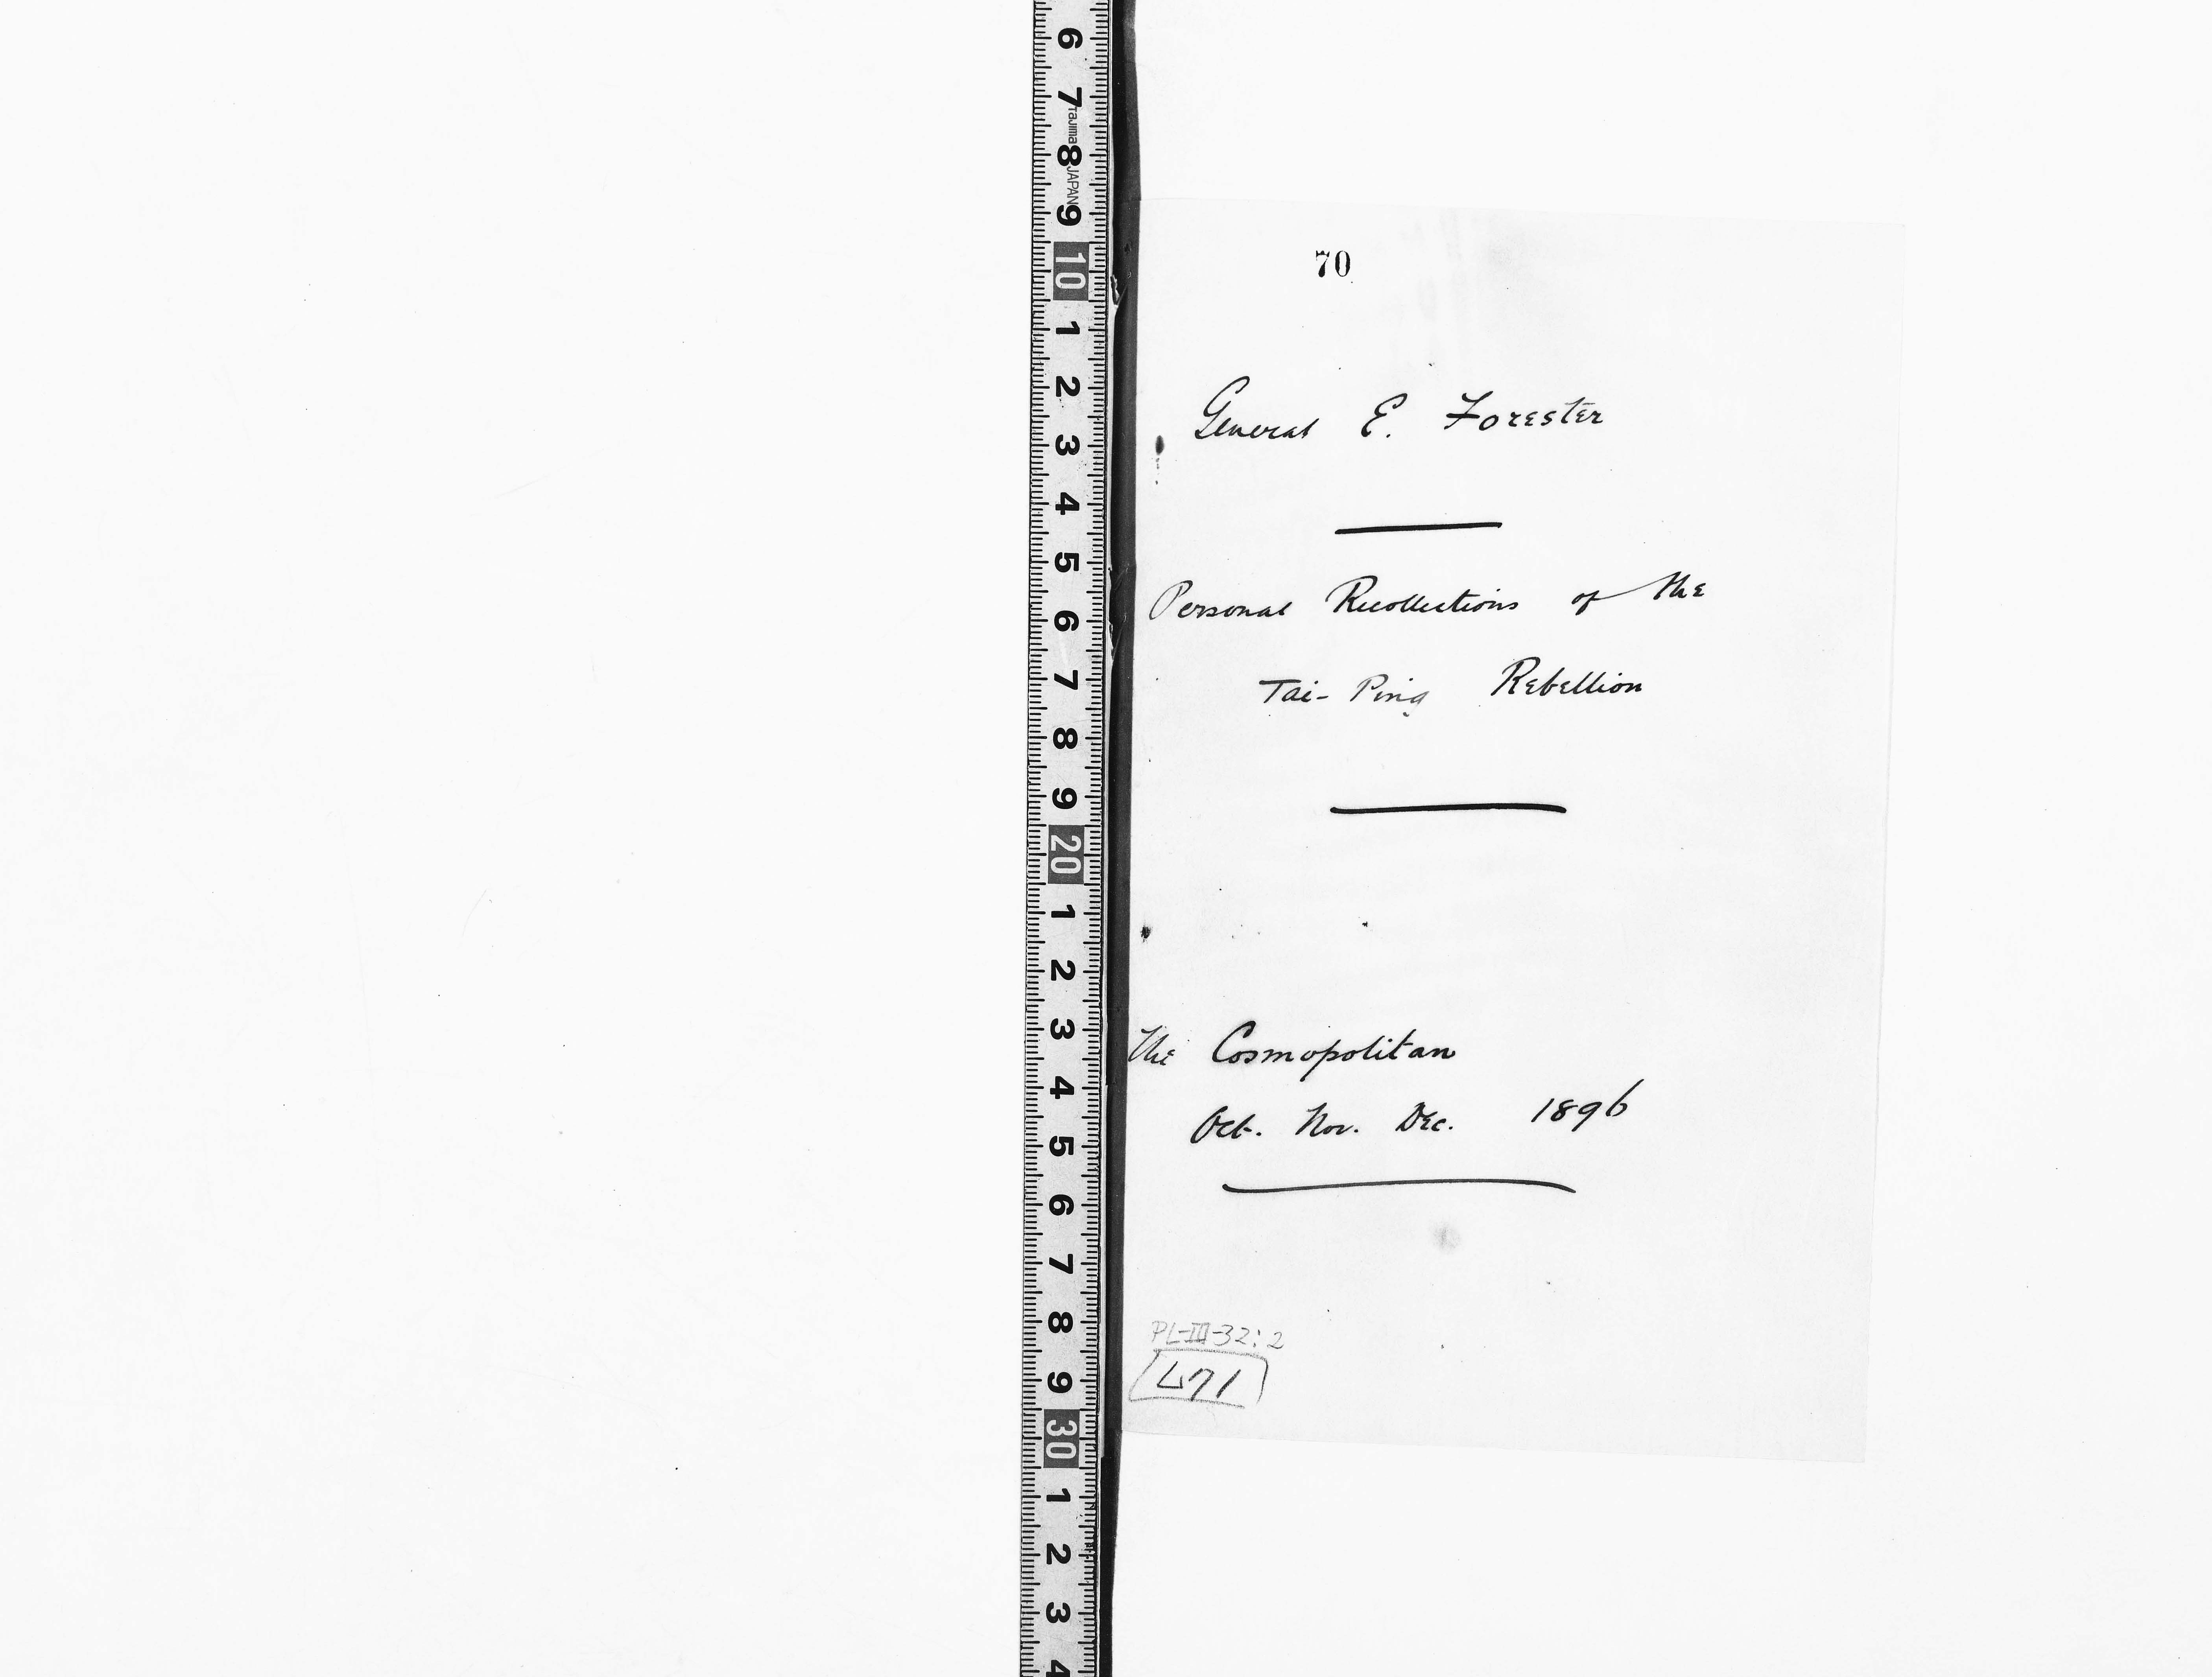 6
7
Tajima
8
JAPAN
9
10
1
2
3
4
5
6
7
8
9
20
1
2
3
4
5
6
7
8
9
30
1
2
3
4
70
General E. Forester
Personal Recollections of the
Tai-Ping Rebellion
The Cosmopolitan
Oct. Nov. Dec. 1896
PL-III-32:2
471